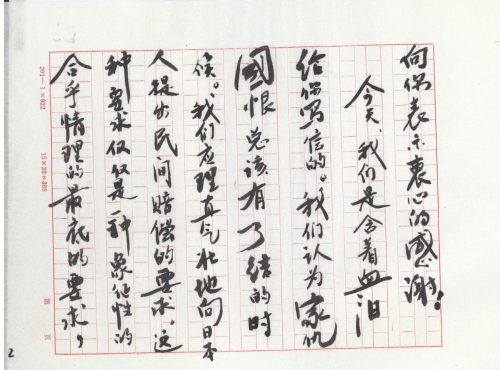 向你表示衷心的感谢！
今天，我们是含着血泪
给你写信的。我们认为家仇
国恨总该有了结的时
候。我们应理直气壮地向日本
人提出民间赔偿的要求，这
种要求仅仅是一种象征性的
合乎情理的最底的要求，
15×20=300
第 页
2